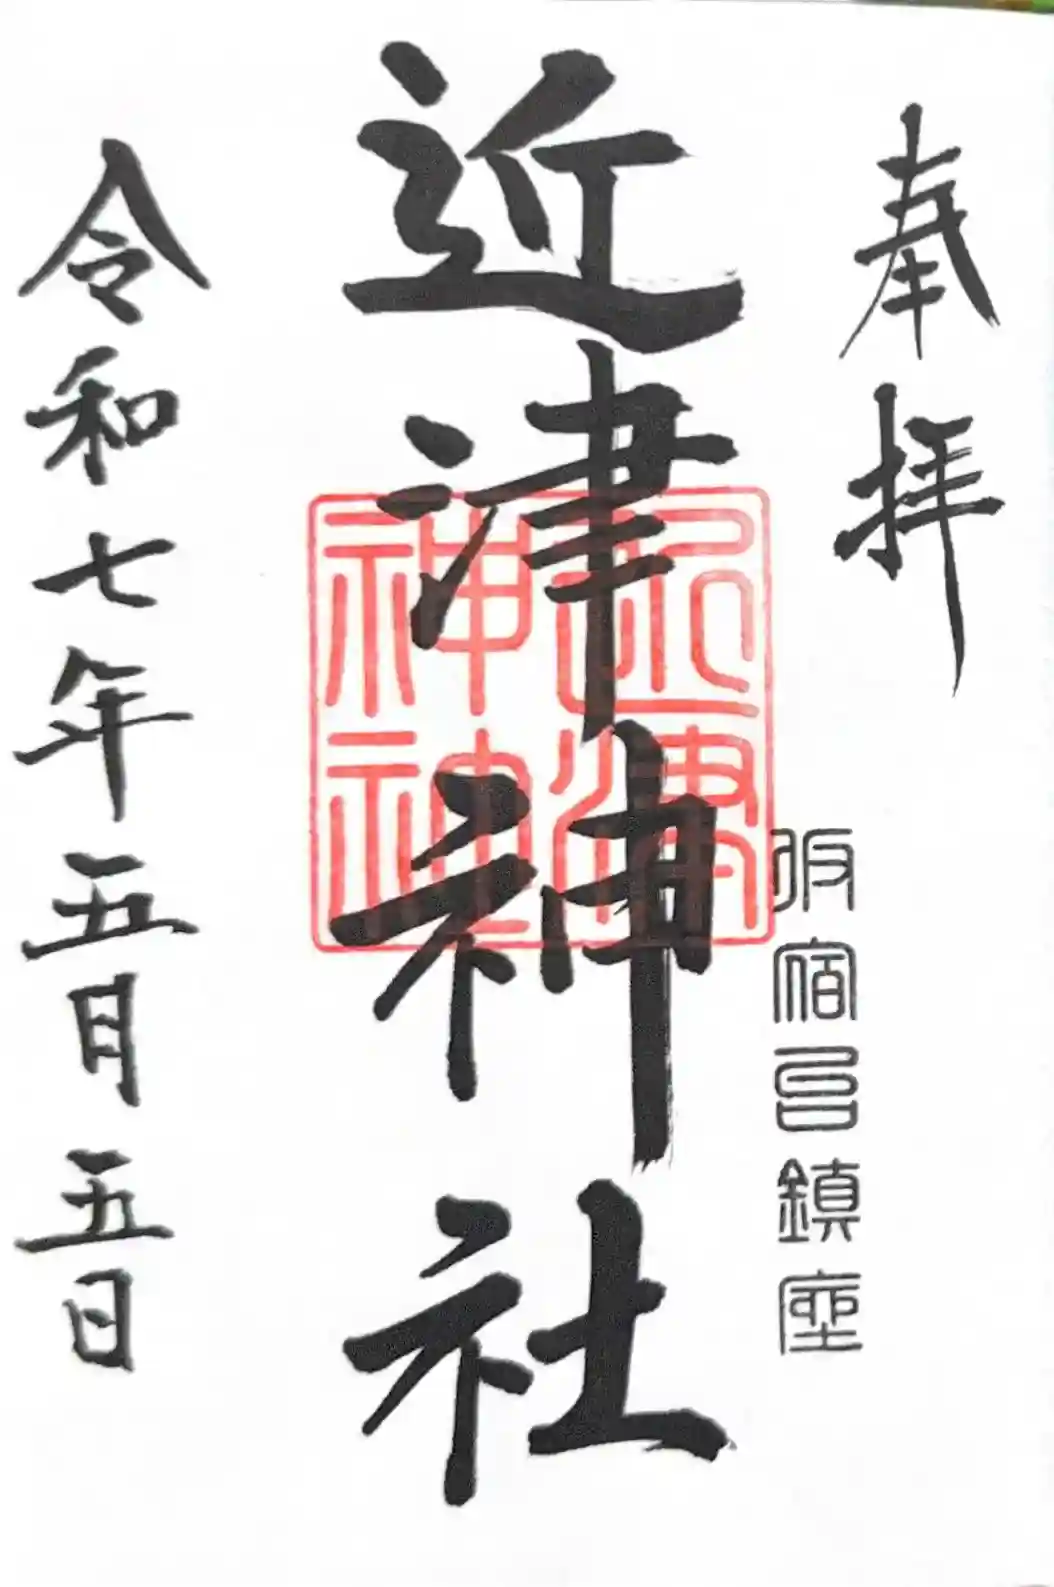 奉拝
仮宿邑鎮座
近津神社
近津
神社
令和七年五月五日